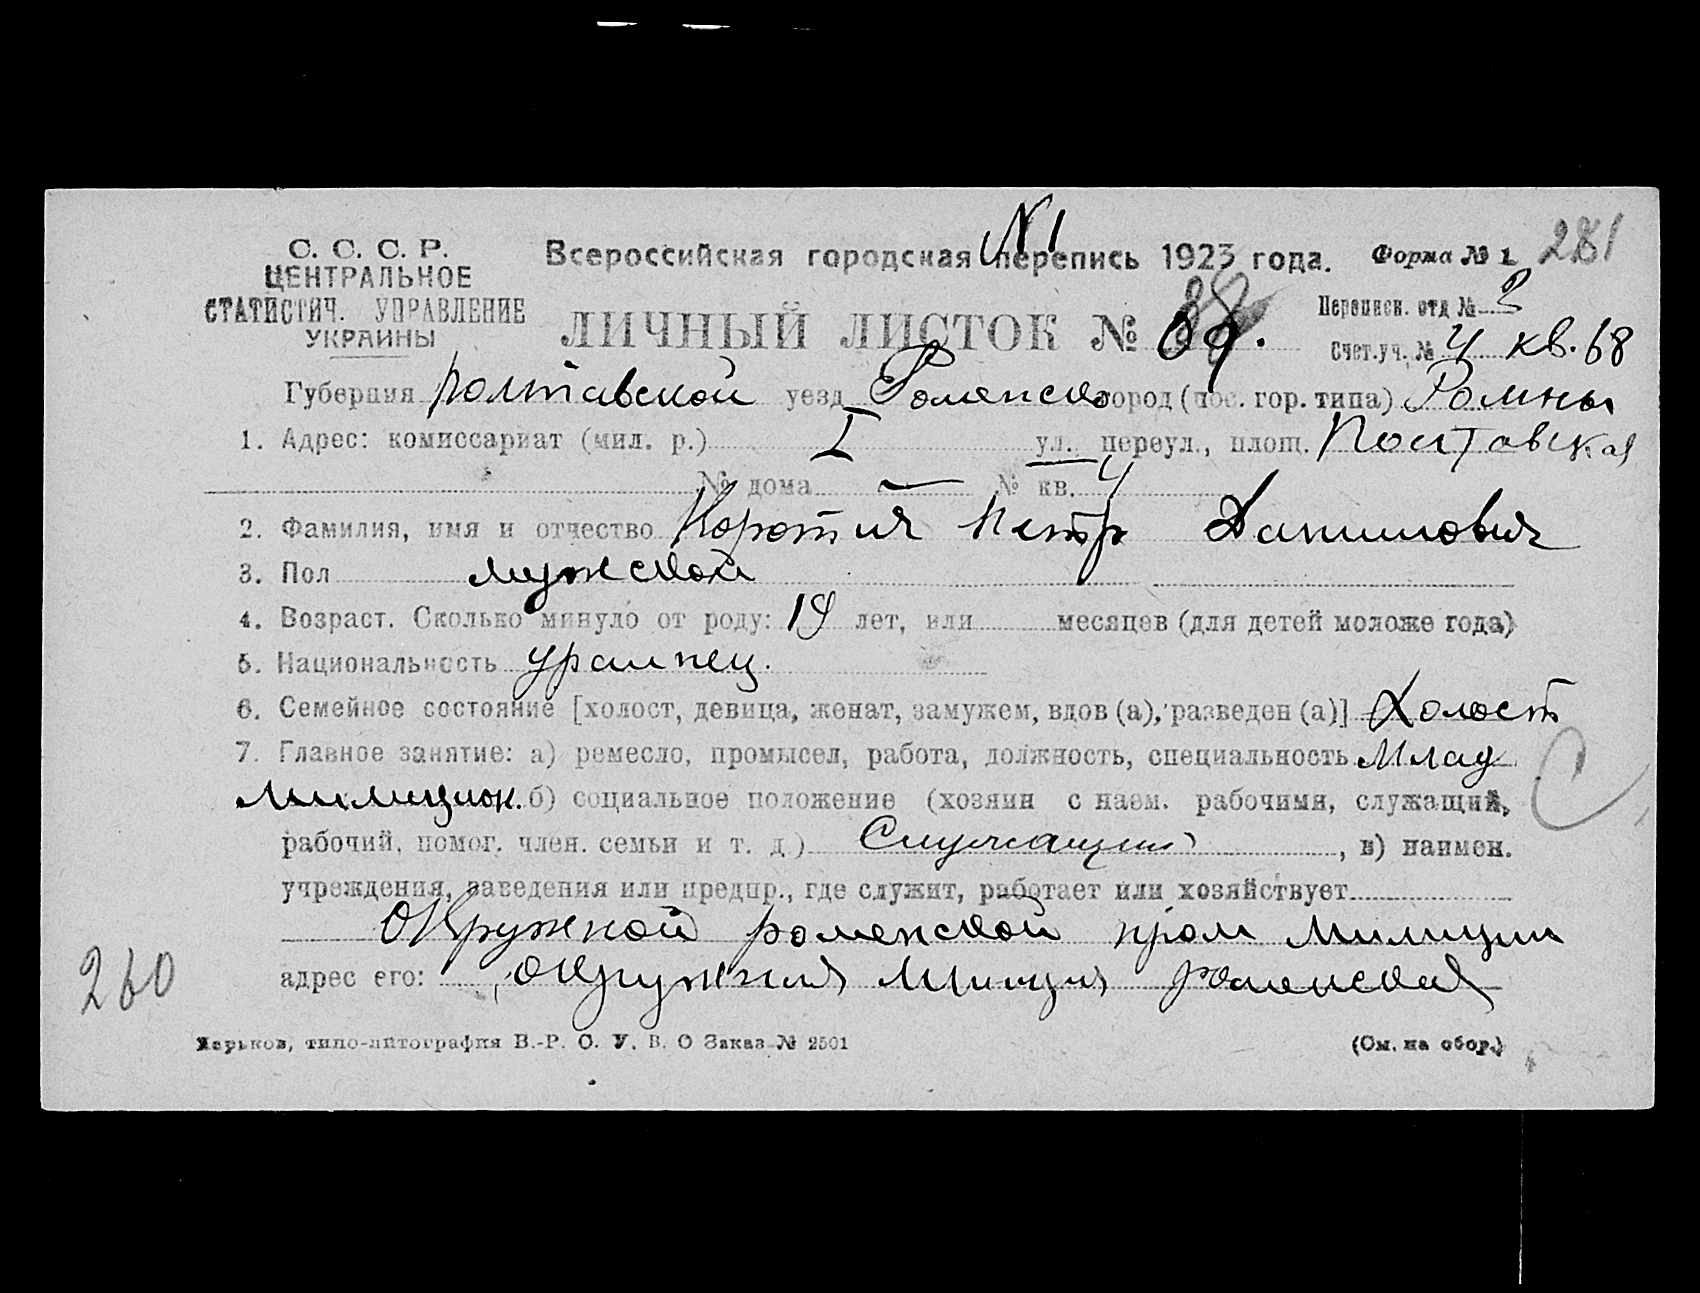 № 1
С. С. С. Р.
ЦЕНТРАЛЬНОЕ
СТАТИСТИЧ. УПРАВЛЕНИЕ
УКРАИНЫ
Всероссийская городская перепись 1923 года. Форма № 1 281
ЛИЧНЫЙ ЛИСТОК №
Переписн. отд № 3
Счет. уч. № 4 кв. 68
Губерния полтавской уезд Роменско город (пос. гор. типа) Ромны
1. Адрес: комиссариат (мил. р.) I ул., переул., площ. Полтавская
№ дома — № кв. 4
2. Фамилия, имя и отчество Коротич Петр Данилович
3. Пол мужской
4. Возраст. Сколько минуло от роду: 19 лет, или месяцев (для детей моложе года)
5. Национальность
6. Семейное состояние [холост, девица, женат, замужем, вдов (а), разведен (а)] Холост
7. Главное занятие: а) ремесло, промысел, работа, должность, специальность Млад
милицион. б) социальное положение (хозяин с наем. рабочими, служащий,
рабочий, помог. член. семьи и т. д.) Служащий, в) наимен.
учреждения, заведения или предпр., где служит, работает или хозяйствует
Окружной роменской пром милиции
адрес его: окружная милиция роменская
260
Харьков, типо-литография В.-Р. О. У. В. О Заказ № 2501
(См. на обор.)